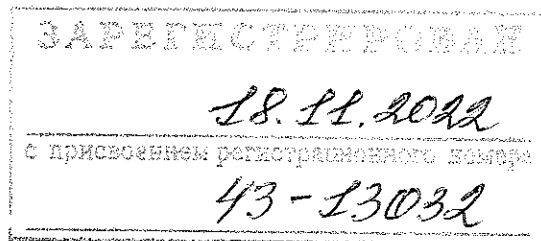 ЗАРЕГИСТРИРОВАН
18.11.2022
с присвоением регистрационного номера
43-13032